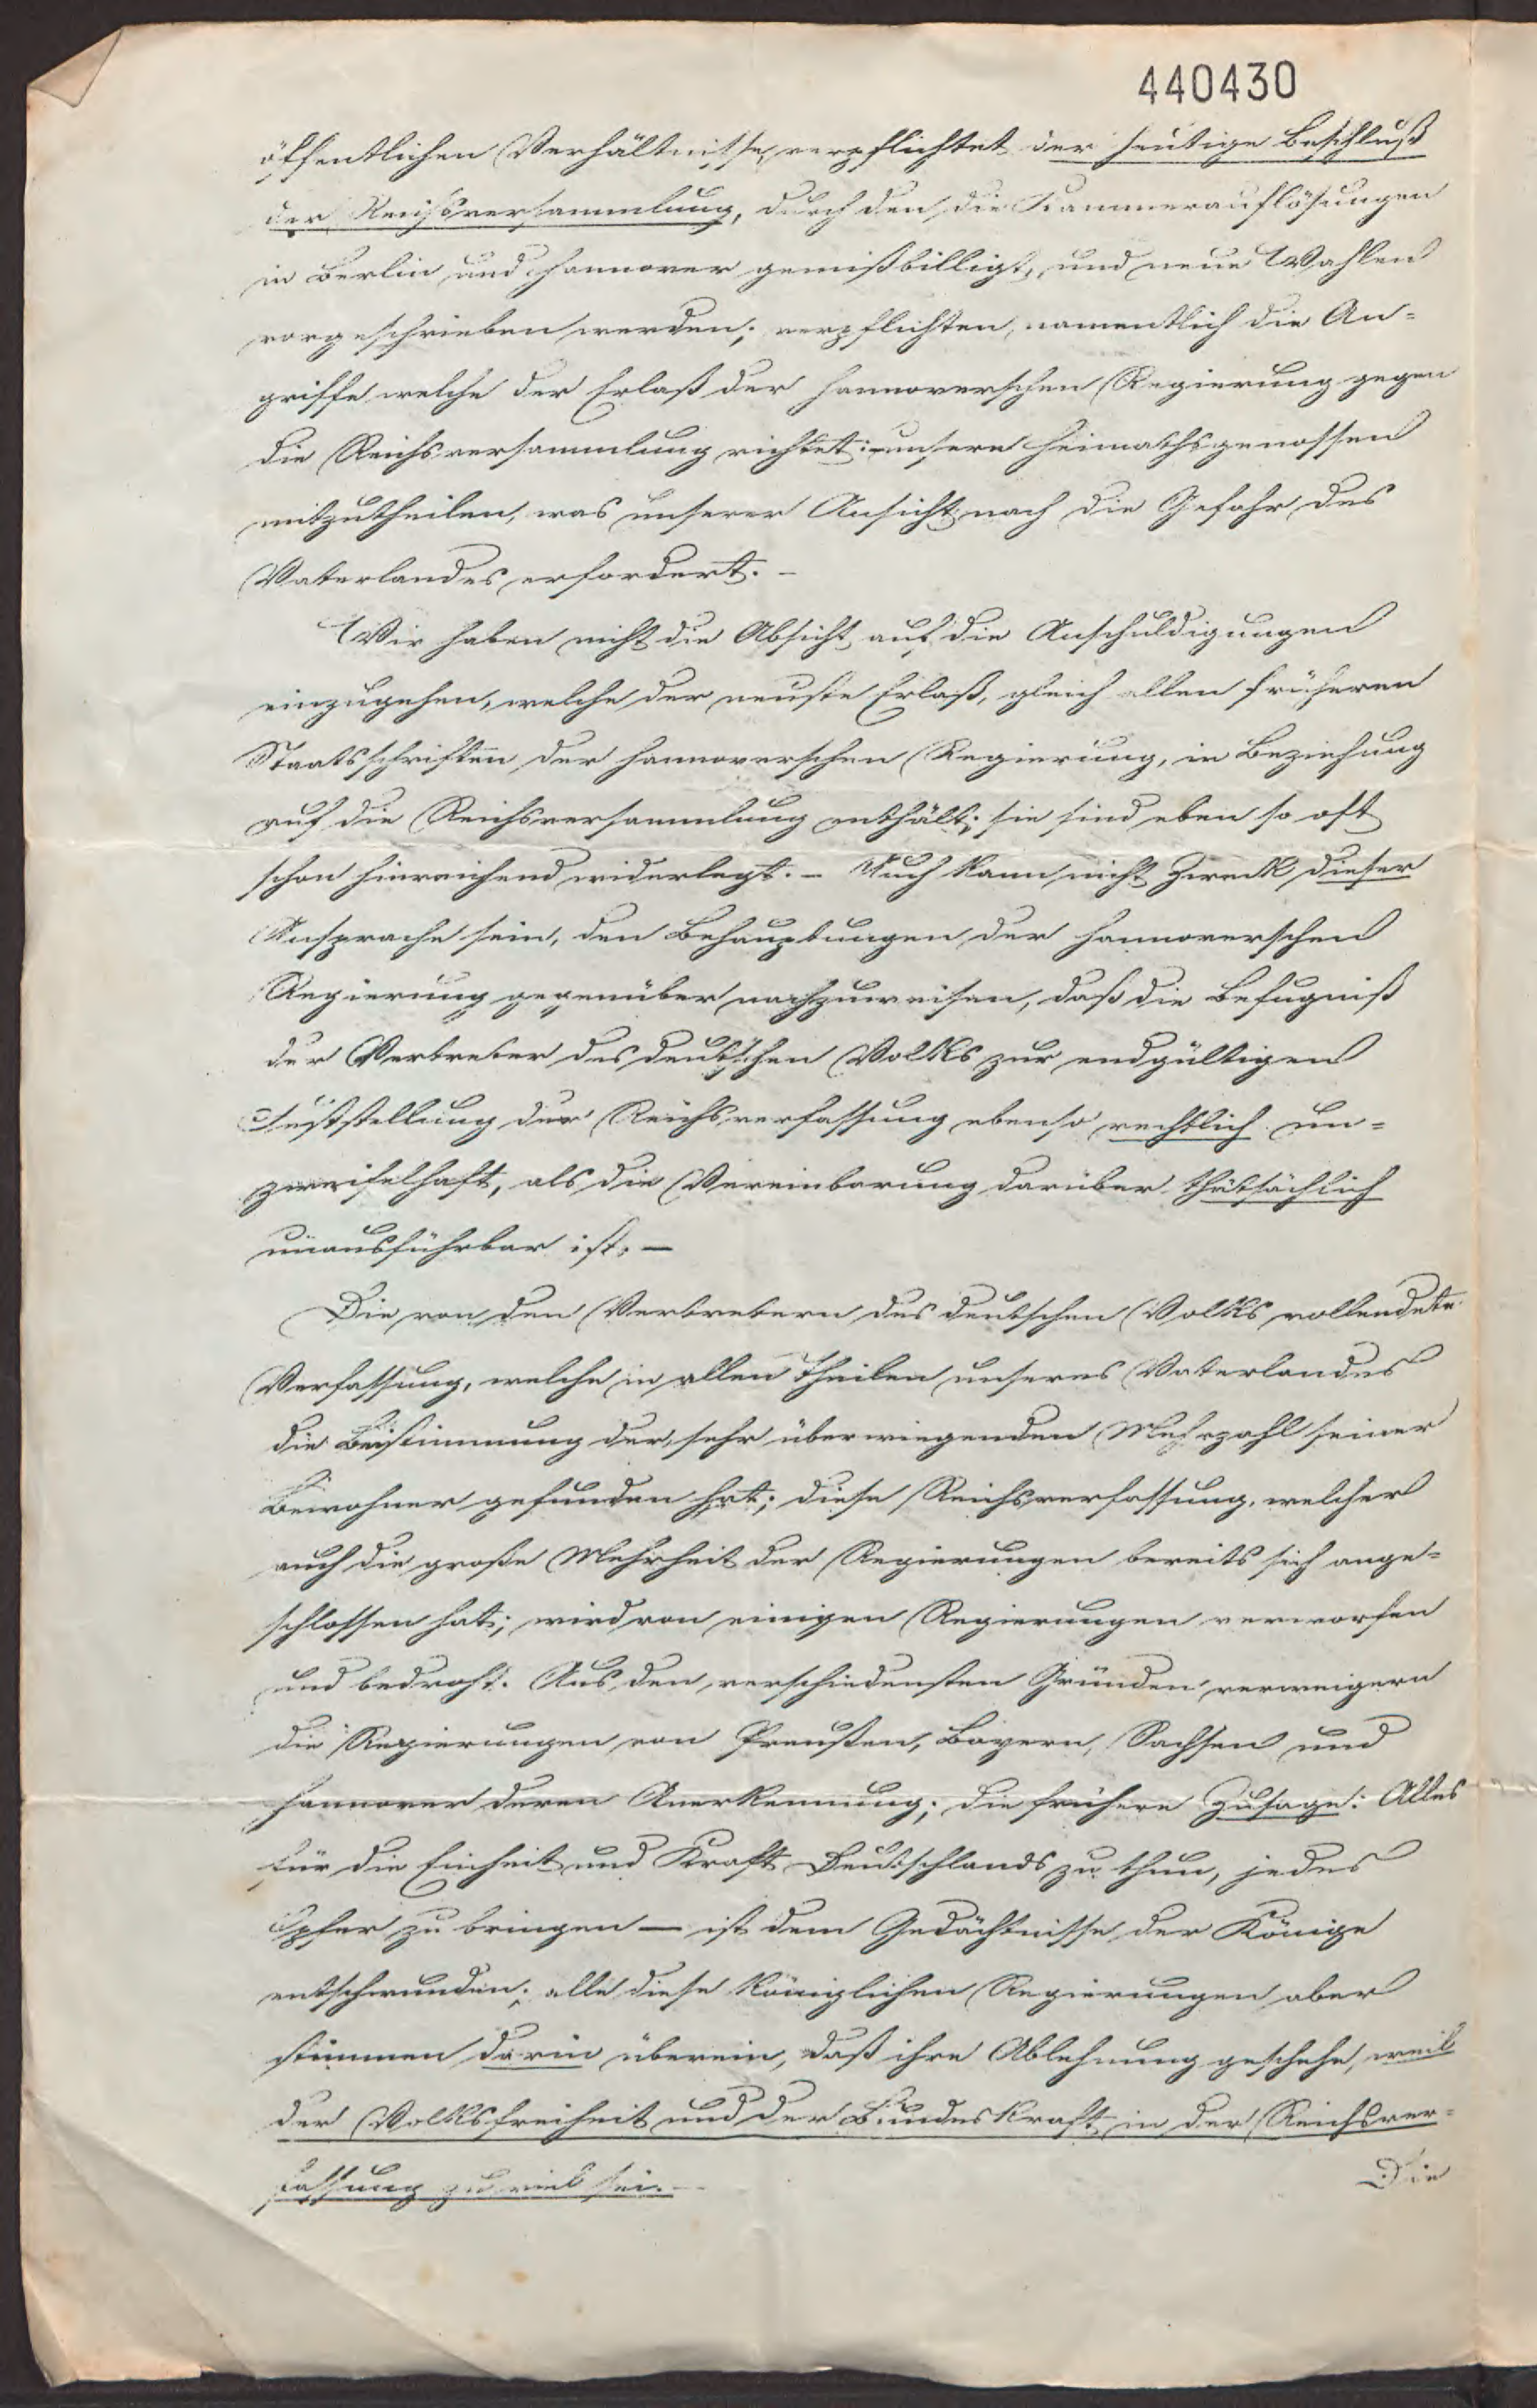 440430
öffentlichen Verhältnisse, verpflichtet der heutige Beschluß
der Reichsversammlung, durch den die Kammerauflösungen
in Berlin und Hannover gemißbilligt, und neue Wahlen
vorgeschrieben werden; verpflichten, namentlich die An-
griffe welche der Erlaß der hannoverschen Regierung gegen
die Reichsversammlung richtet: unsern Heimathsgenossen
mitzutheilen, was unserer Ansicht nach die Gefahr des
Vaterlandes erfordert. –
Wir haben nicht die Absicht auf die Anschuldigungen
einzugehen, welche der neuste Erlaß, gleich allen früheren
Staatsschriften der hannoverschen Regierung, in Beziehung
auf die Reichsversammlung enthält; sie sind eben so oft
schon hinreichend widerlegt. – Auch kann nicht Zweck dieser
Ansprache sein, den Behauptungen der hannoverschen
Regierung gegenüber nachzuweisen, daß die Befugniß
der Vertreter des deutschen Volks zur endgültigen
Feststellung der Reichsverfassung ebenso rechtlich un-
zweifelhaft, als die Vereinbarung darüber thatsächlich
unausführbar ist. –
Die von den Vertretern des deutschen Volks vollendete
Verfassung, welche in allen Theilen unseres Vaterlandes
die Beistimmung der sehr überwiegenden Mehrzahl seiner
Bewohner gefunden hat; diese Reichsverfassung, welcher
auch die große Mehrheit der Regierungen bereits sich ange-
schlossen hat; wird von einigen Regierungen verworfen
und bedroht. Aus den verschiedensten Gründen verweigern
die Regierungen von Preußen, Bayern, Sachsen und
Hannover deren Anerkennung; die frühere Zusage: Alles
für die Einheit und Kraft Deutschlands zu thun, jedes
Opfer zu bringen – ist dem Gedächtnisse der Könige
entschwunden; alle diese Königlichen Regierungen aber
stimmen darin überein, daß ihre Ablehnung geschehe, weil
der Volksfreiheit und der Bundeskraft in der Reichsver-
fassung zu viel sei. –
Die